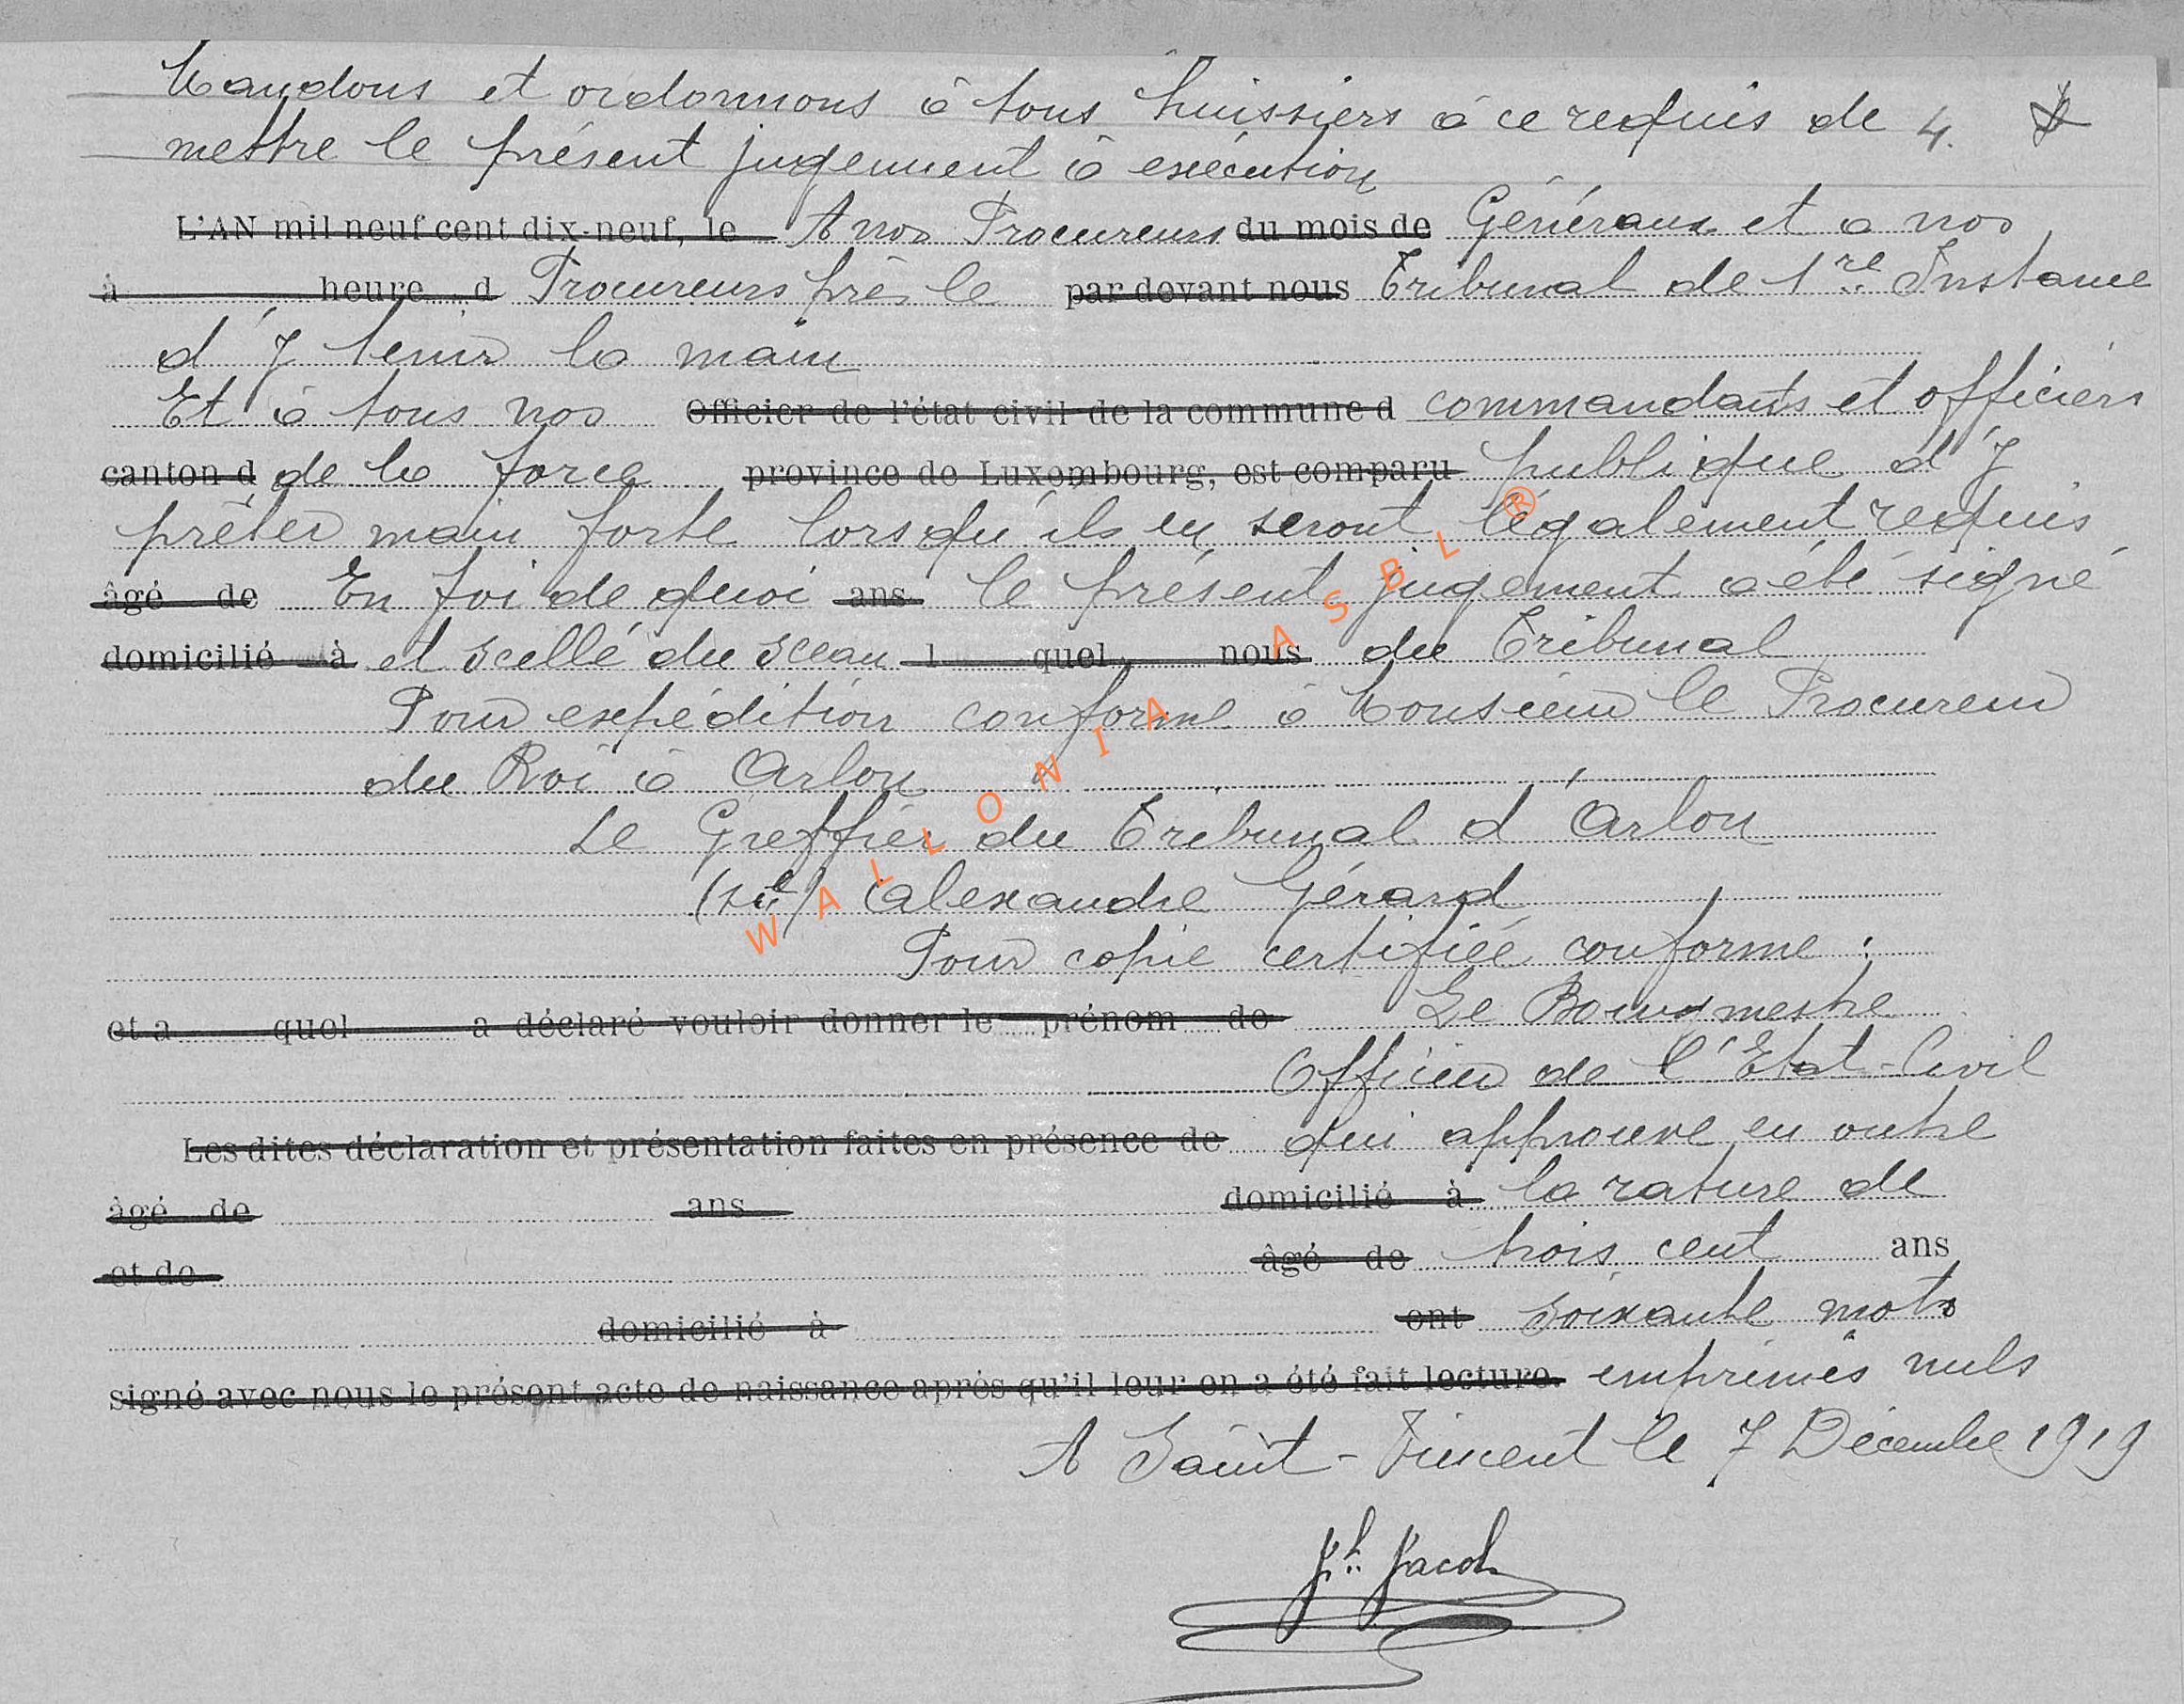 Mandons et ordonnons à tous huissiers à ce requis de 4.
mettre le présent jugement à exécution
L'AN mil neuf cent dix-neuf, le A nos Procureurs du mois de Généraux et à nos
à heure d Procureurs près le par devant nous Tribunal de 1re Instance
d'y tenir la main
Et à tous nos Officier de l'état civil de la commune d commandants et officiers
canton d de la force province de Luxembourg, est comparu publique d'y
prêter main forte lorsqu'ils en seront légalement requis
âgé de En foi de quoi ans le présent jugement a été signé
domicilié à et scellé du sceau l quel, nous du Tribunal
Pour expédition conforme à Monsieur le Procureur
du Roi à Arlon
Le Greffier du Tribunal d'Arlon
(sé) Alexandre Gérard
Pour copie certifiée conforme :
et a quel a déclaré vouloir donner le prénom de Le Bourgmestre
Officier de l'Etat-Civil
Les dites déclaration et présentation faites en présence de qui approuve en outre
âgé de ans domicilié à la rature de
et de âgé de trois cent ans
domicilié à ont soixante mots
signé avec nous le présent acte de naissance après qu'il leur en a été fait lecture. emprimés nuls
A Saint-Vincent le 7 Décembre 1919
Jh Jacob
WALLONIA ASBL ®